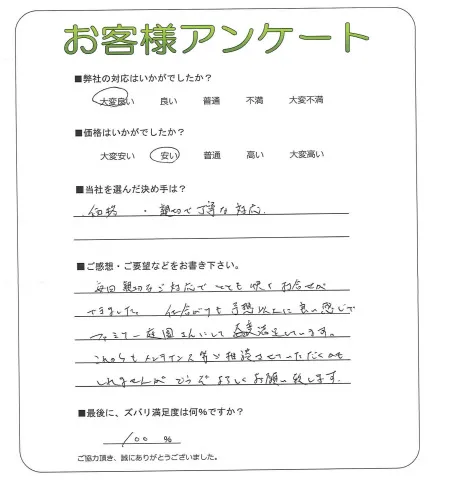 お客様アンケート
■弊社の対応はいかがでしたか？
大変良い 良い 普通 不満 大変不満
■価格はいかがでしたか？
大変安い 安い 普通 高い 大変高い
■当社を選んだ決め手は？
・価格 ・親切で丁寧な対応.
■ご感想・ご要望などをお書き下さい。
毎日親切なご対応で とても 快く お任せが
できました。 仕上がりも 予想以上に 良い感じで
ファミリー庭園さんにして 大変満足しています。
これからも メンテナンス等ご相談させていただくかも
しれませんが どうぞ よろしく お願い致します.
■最後に、ズバリ満足度は何%ですか？
100 %
ご協力頂き、誠にありがとうございました。